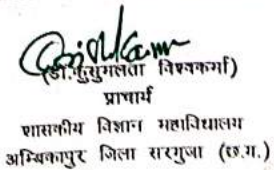 (डॉ.कुसुमलता विश्वकर्मा)
प्राचार्य
शासकीय विज्ञान महाविधालय
अम्बिकापुर जिला सरगुजा (छ.ग.)